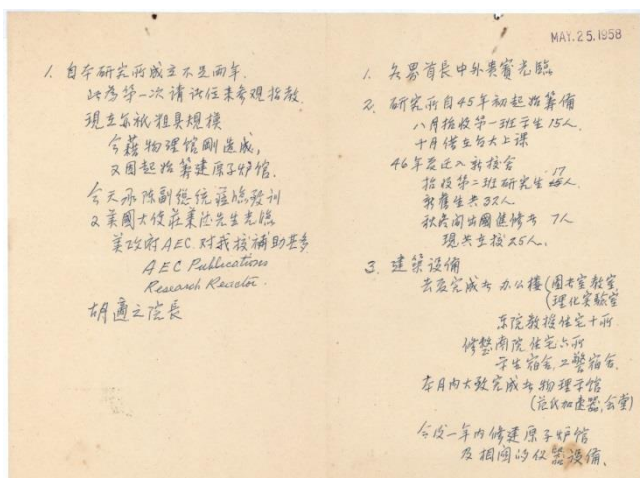 MAY.25.1958
1. 自本研究所成立不足两年.
此为第一次请诸位来参观指教.
現在亦祇粗具規模
今藉物理馆剛造成,
又因起始筹建原子炉馆.
今天承陈副總統蒞臨致训
又美國大使莊莱德先生光臨
美政府AEC.对我校補助甚多
AEC Publications
Research Reactor.
胡適之院長
1. 各界首長中外貴賓光臨
2. 研究所自45年初起始筹備
八月招收第一班学生15人.
十月借立台大上课
46年 迁入新校舍
招收第二班研究生17人.
新舊生共32人
秋冬间出國進修者 7人
現共立校25人.
3. 建築設備
去夏完成者 办公樓(圖書室,教室,
(理化实驗室
东院教授住宅十所
修整南院住宅六所
学生宿舍,工警宿舍.
本月内大致完成者 物理学馆
(范氏加速器,会堂)
今後一年内修建原子炉馆
及相関的仪器設備.